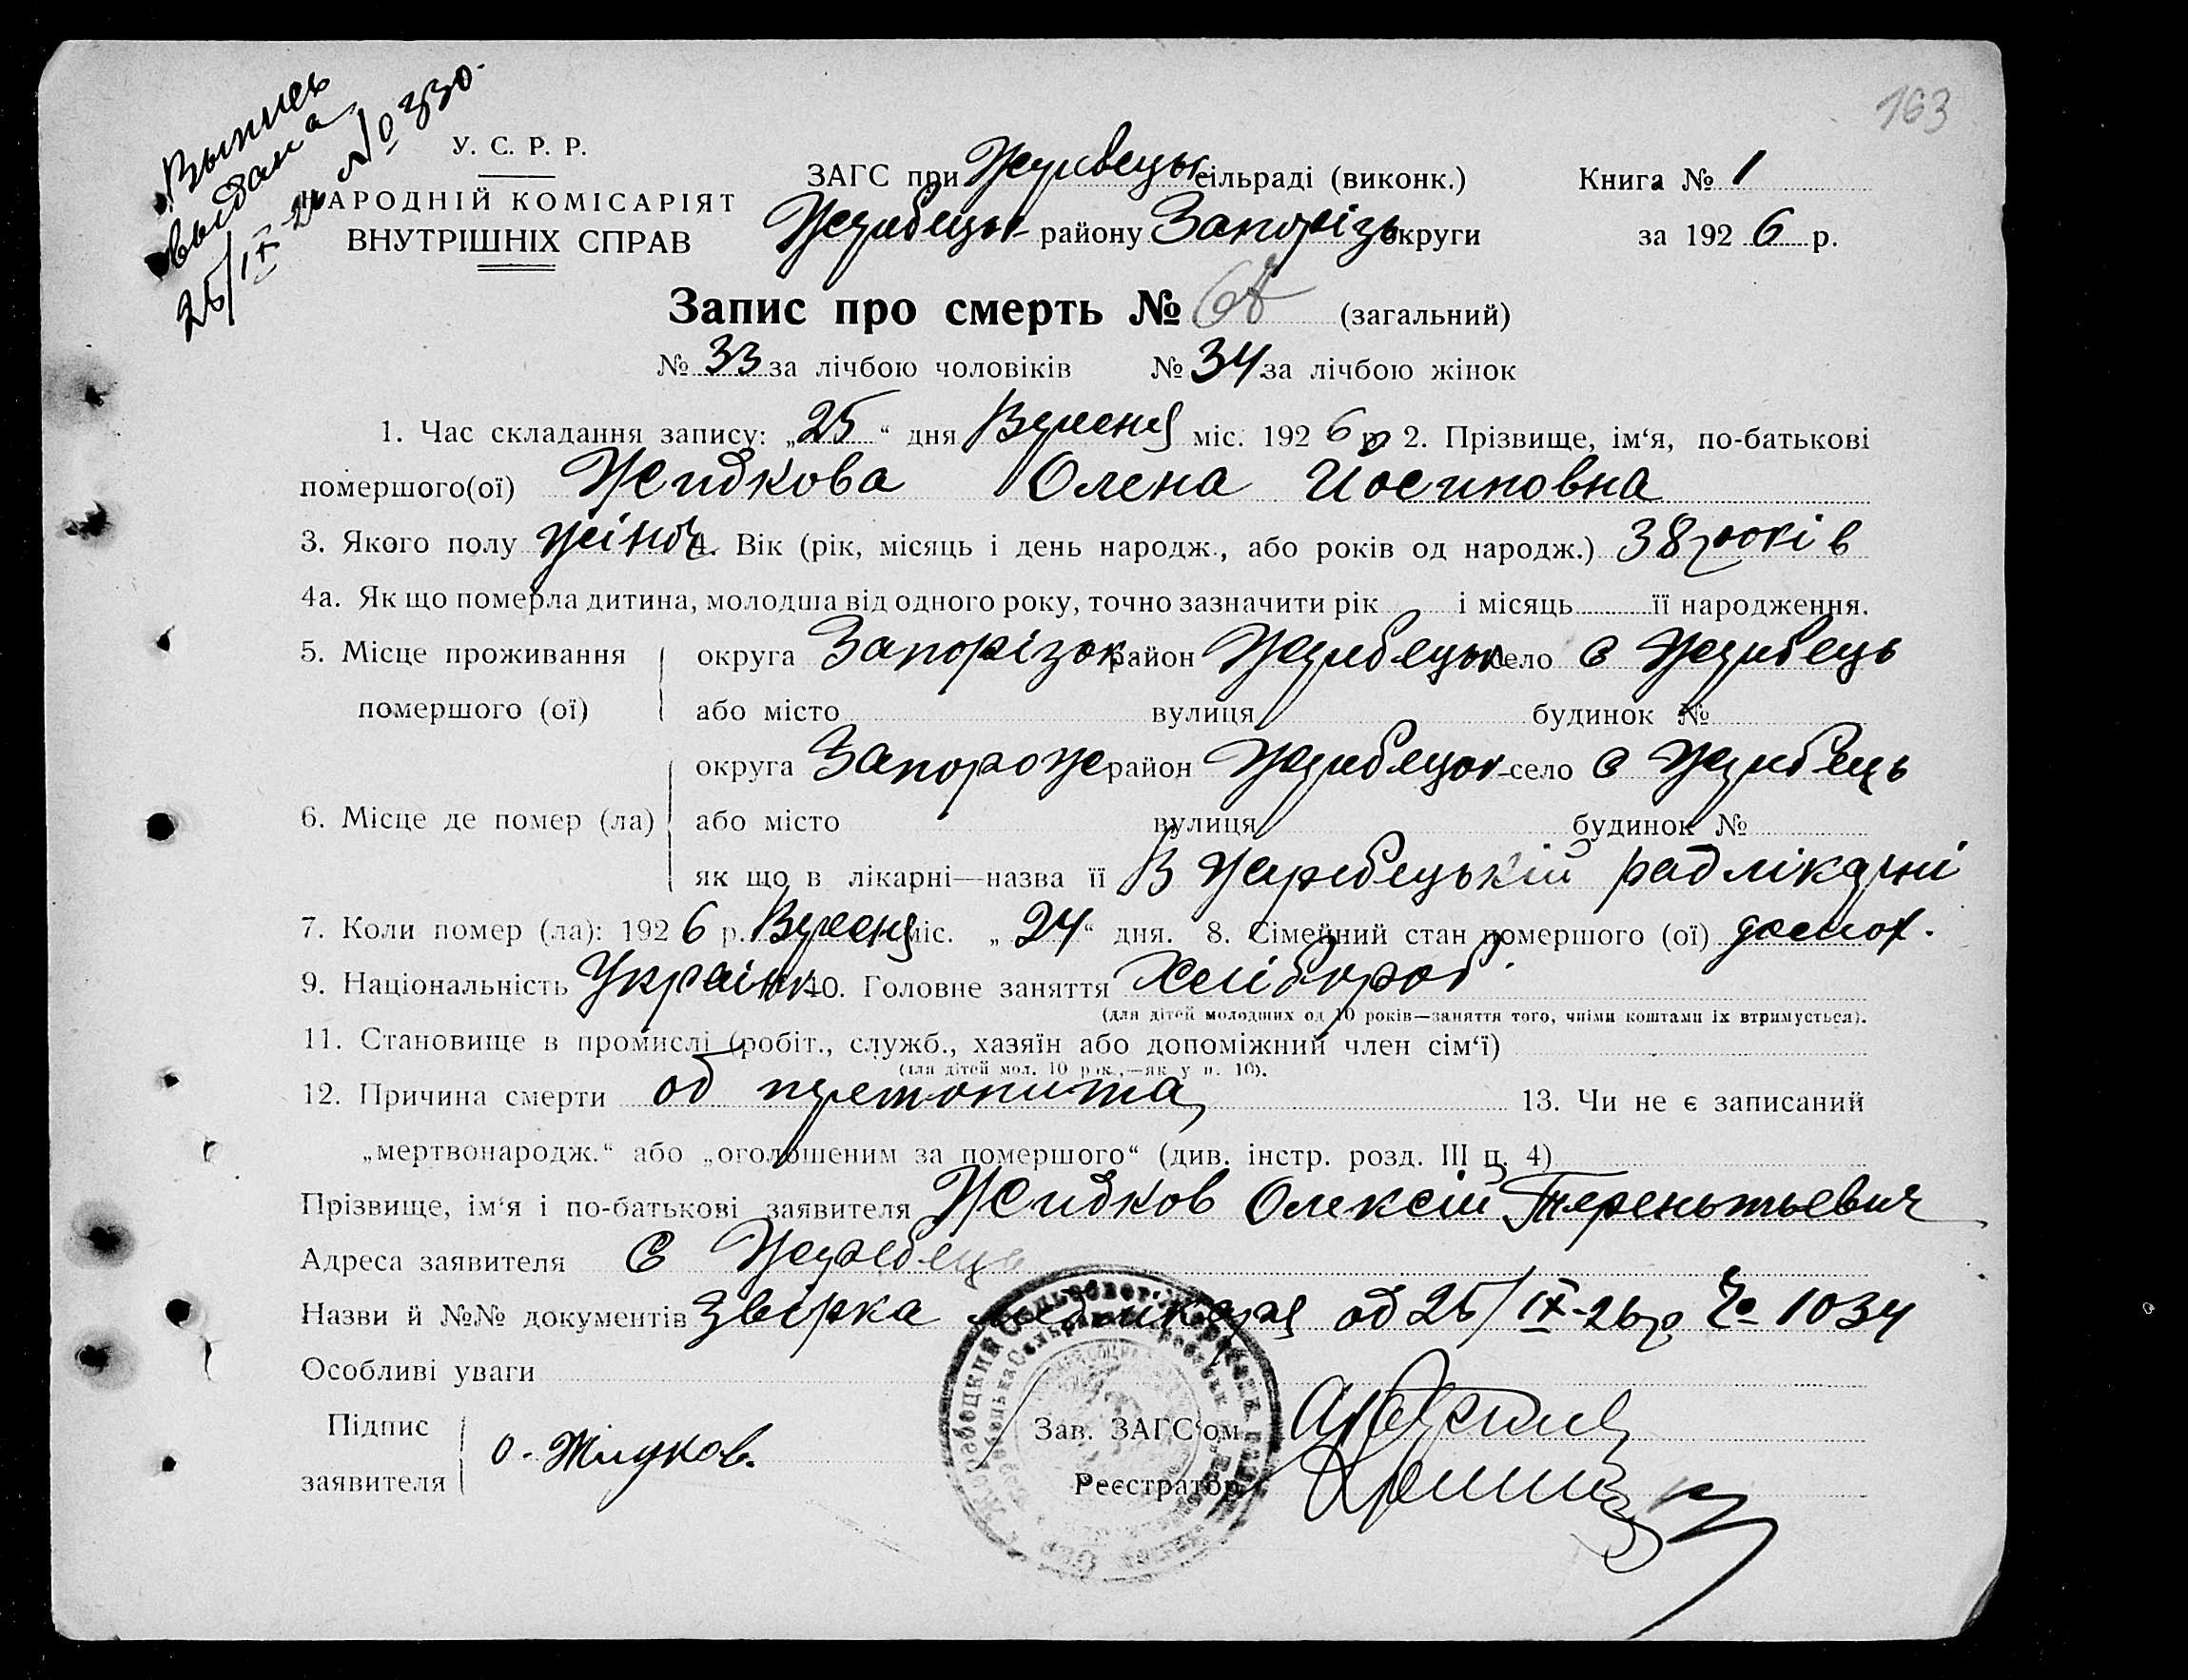 163
Выпись
выдана
25/IX-26 № 330.
У. С. Р. Р.
НАРОДНІЙ КОМІСАРІЯТ
ВНУТРІШНІХ СПРАВ
ЗАГС при Жеребецьк сільраді (виконк.)
Жеребецьк району Запорізьк округи
Книга № 1
за 1926 р.
Запис про смерть № (загальний)
№ 33 за лічбою чоловіків № 34 за лічбою жінок
1. Час складання запису: „25“ дня Вересня міс. 1926 р 2. Прізвище, ім‘я, по-батькові
помершого(ої) Жидкова Олена Йосиповна
3. Якого полу жіноч 4. Вік (рік, місяць і день народж., або років од народж.) 38 років
4а. Як що померла дитина, молодша від одного року, точно зазначити рік і місяць її народження.
5. Місце проживання
помершого (ої)
округа Запорізьк район Жеребецьк село с Жеребець
або місто вулиця будинок №
6. Місце де помер (ла)
округа Запорож район Жеребецьк село с Жеребець
або місто вулиця будинок №
як що в лікарні—назва її В Жеребецькій радлікарні
7. Коли помер (ла): 1926 р. Вересня міс. „24“ дня. 8. Сімейний стан помершого (ої)
9. Національність Українк 10. Головне заняття Хлібороб
(для дітей молодших од 10 років—заняття того, чиїми коштами їх втримується).
11. Становище в промислі (робіт., служб., хазяїн або допоміжний член сім‘ї)
(для дітей мол. 10 рок.,—як у п. 10).
12. Причина смерти од 13. Чи не є записаний
„мертвонародж.“ або „оголошеним за помершого“ (див. інстр. розд. III п. 4)
Прізвище, ім‘я і по-батькові заявителя Жидков Олексій Терентьевич
Адреса заявителя С Жеребець
Назви й №№ документів од 25/IX-26р № 1034
Особливі уваги
Підпис
заявителя
О. Жидков.
Зав. ЗАГС‘ом
Реєстратор